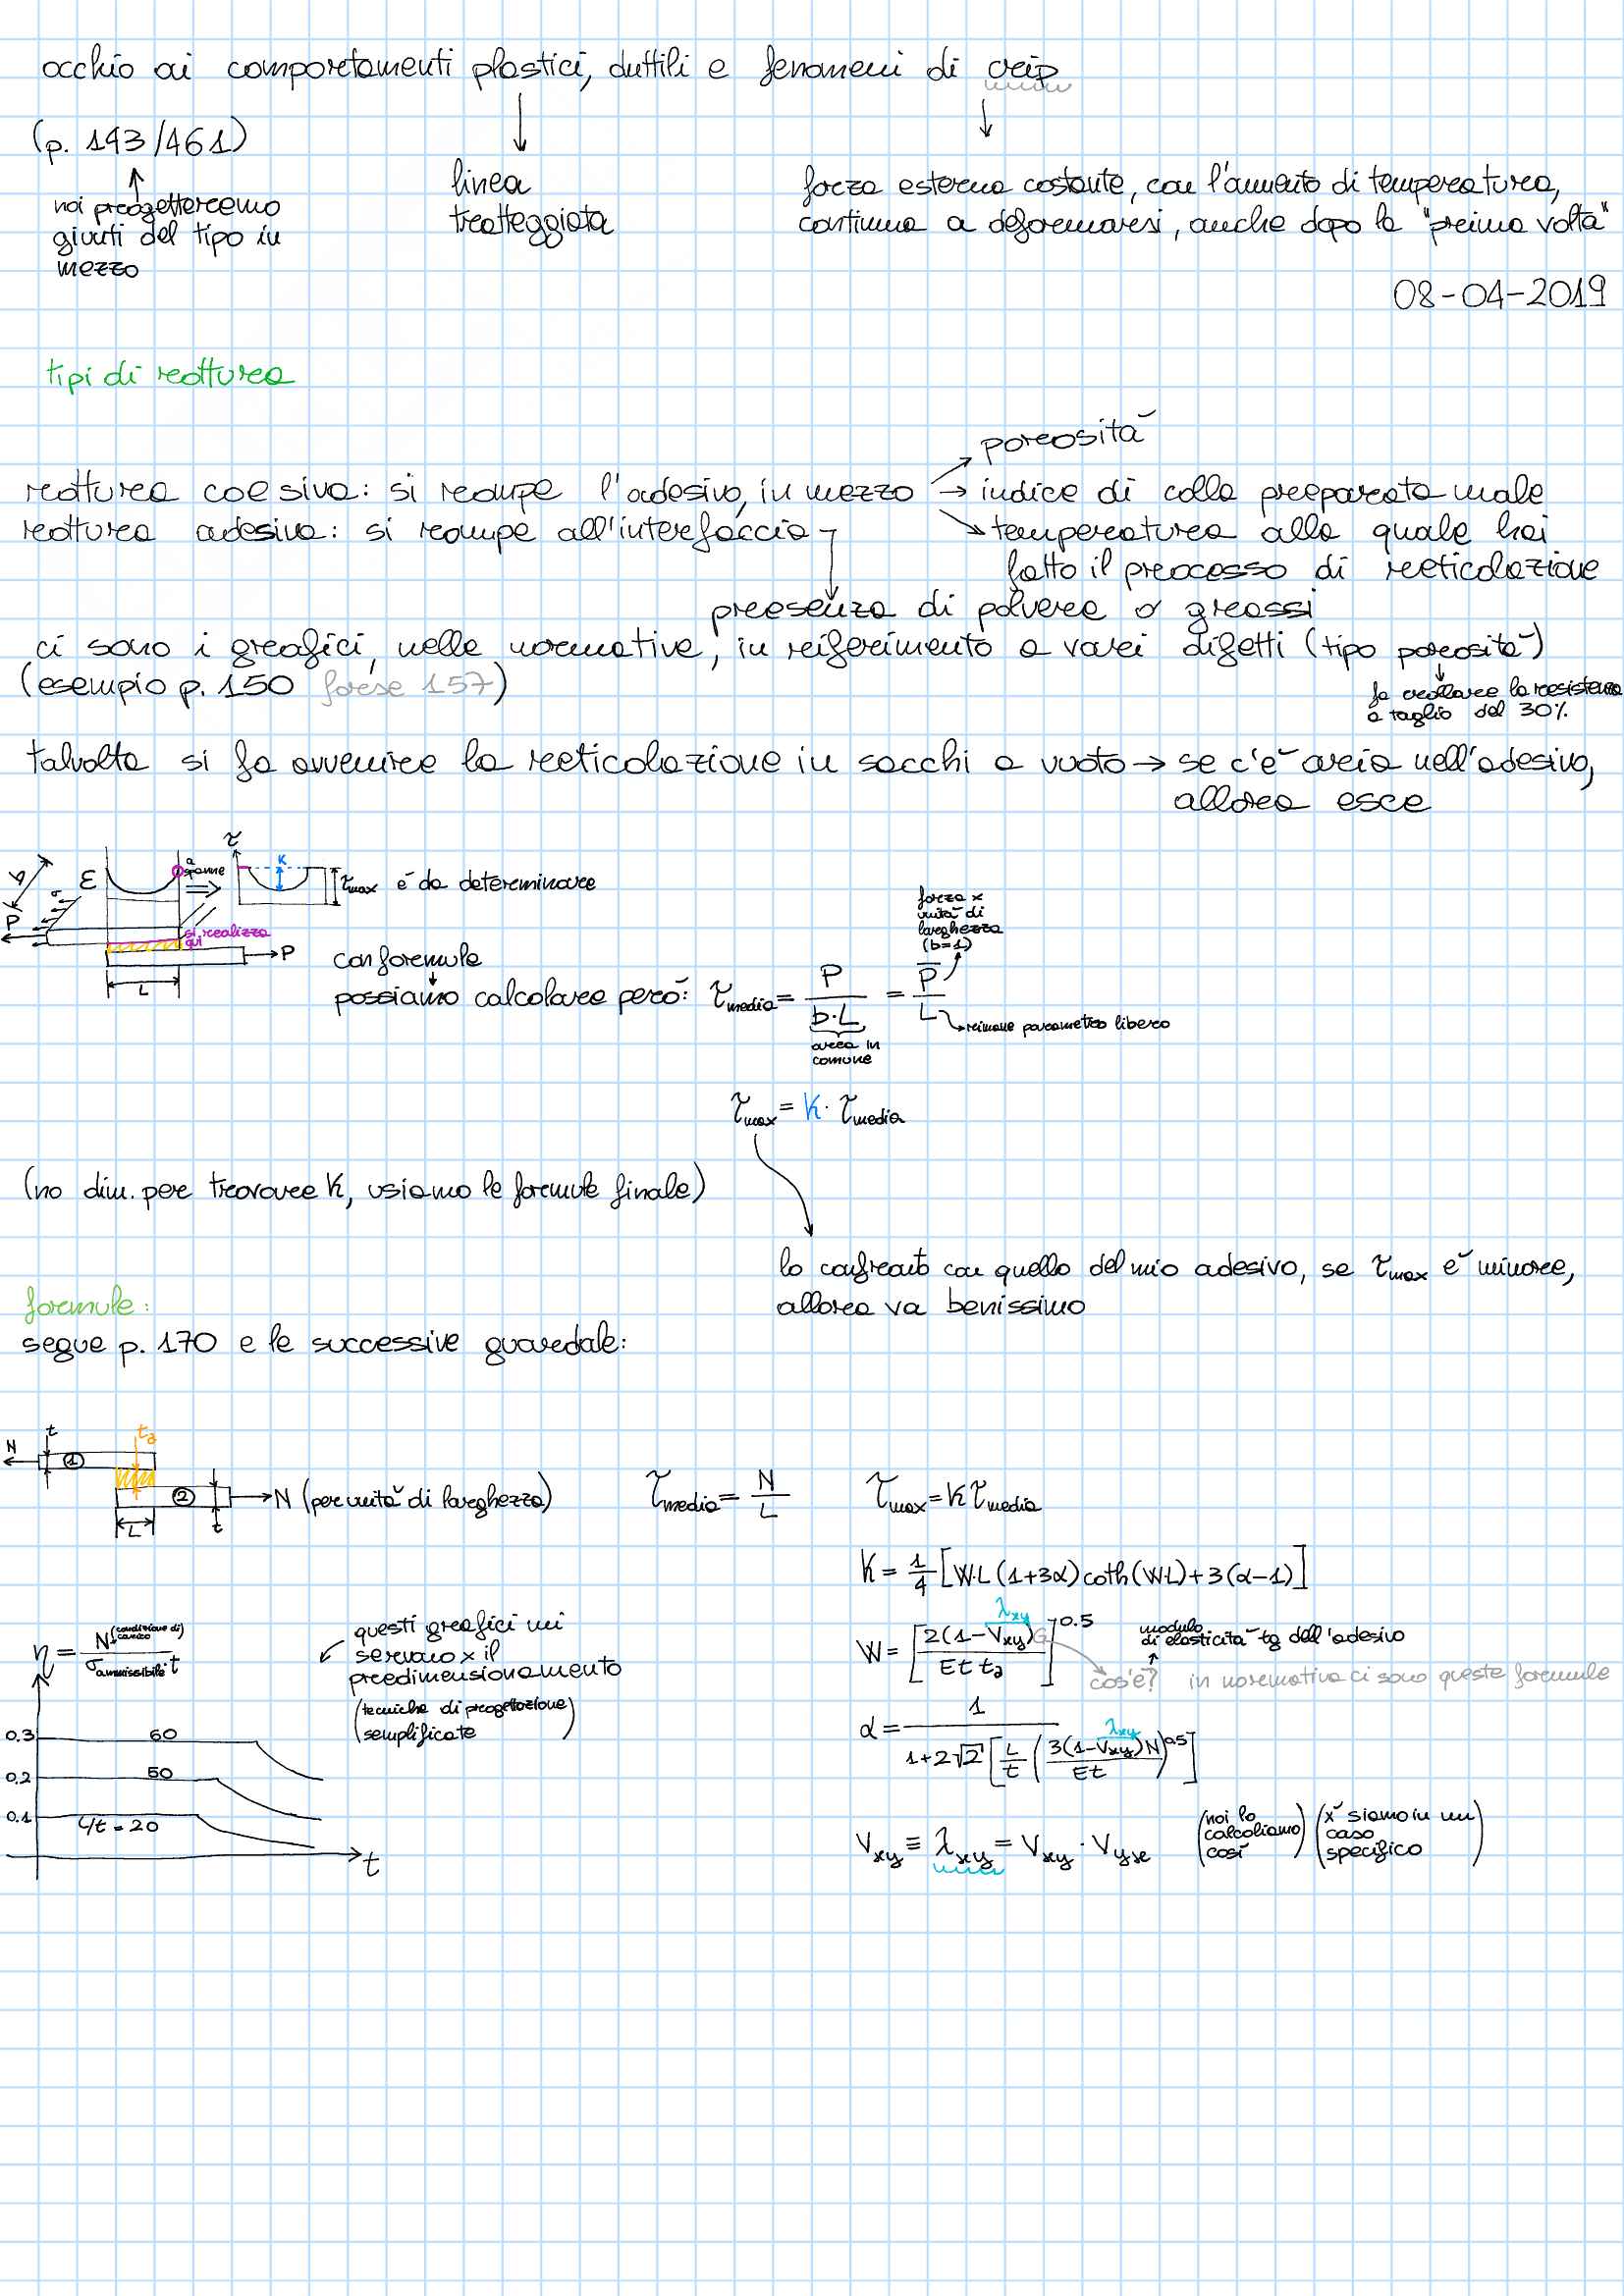 occhio ai comportamenti plastici, duttili e fenomeni di crip
(p. 143/461)
noi progetteremo
giunti del tipo in
mezzo
linea
tratteggiata
forza esterna costante, con l'aumento di temperatura,
continua a deformarsi, anche dopo la "prima volta"
08-04-2019
tipi di rottura
porosità
rottura coesiva: si rompe l'adesivo, in mezzo → indice di colla preparata male
rottura adesiva: si rompe all'interfaccia
temperatura alla quale hai
fatto il processo di reticolazione
presenza di polvere o grassi
ci sono i grafici, nelle normative, in riferimento a vari difetti (tipo porosità)
(esempio p. 150 forse 157)
fa crollare la resistenza
a taglio del 30%
talvolta si fa avvenire la reticolazione in sacchi a vuoto → se c'è aria nell'adesivo,
allora esce
b
σ
P
ε
si realizza
qui
P
L
τ
K
τmax è da determinare
con formule
possiamo calcolare però: τmedia = P / b·L = P̅ / L
area in
comune
forza x
unità di
larghezza
(b=1)
rimane parametro libero
τmax = K · τmedia
(no dim. per trovare K, usiamo le formule finale)
lo confronto con quello del mio adesivo, se τmax è minore,
allora va benissimo
formule:
segue p. 170 e le successive guardale:
N
t
①
ta
②
N (per unità di larghezza)
L
t
τmedia = N / L
τmax = K τmedia
K = 1/4 [W·L (1+3α) coth (W·L) + 3(α-1)]
W = [2(1-Vxy)G / E t ta]^0.5
λxy
modulo
di elasticità tg dell'adesivo
cos'è?
in normativa ci sono queste formule
α = 1 / 1+2√2 [L/t (3(1-Vxy)N / Et)^0.5]
λxy
Vxy ≡ λxy = Vxy · Vyx
(noi lo
calcoliamo
così)
(x' siamo in un
caso
specifico)
η = N (condizione di carico) / σammissibile t
questi grafici mi
servono x il
predimensionamento
(tecniche di progettazione
semplificate)
0.3
60
0.2
50
0.1
L/t = 20
t